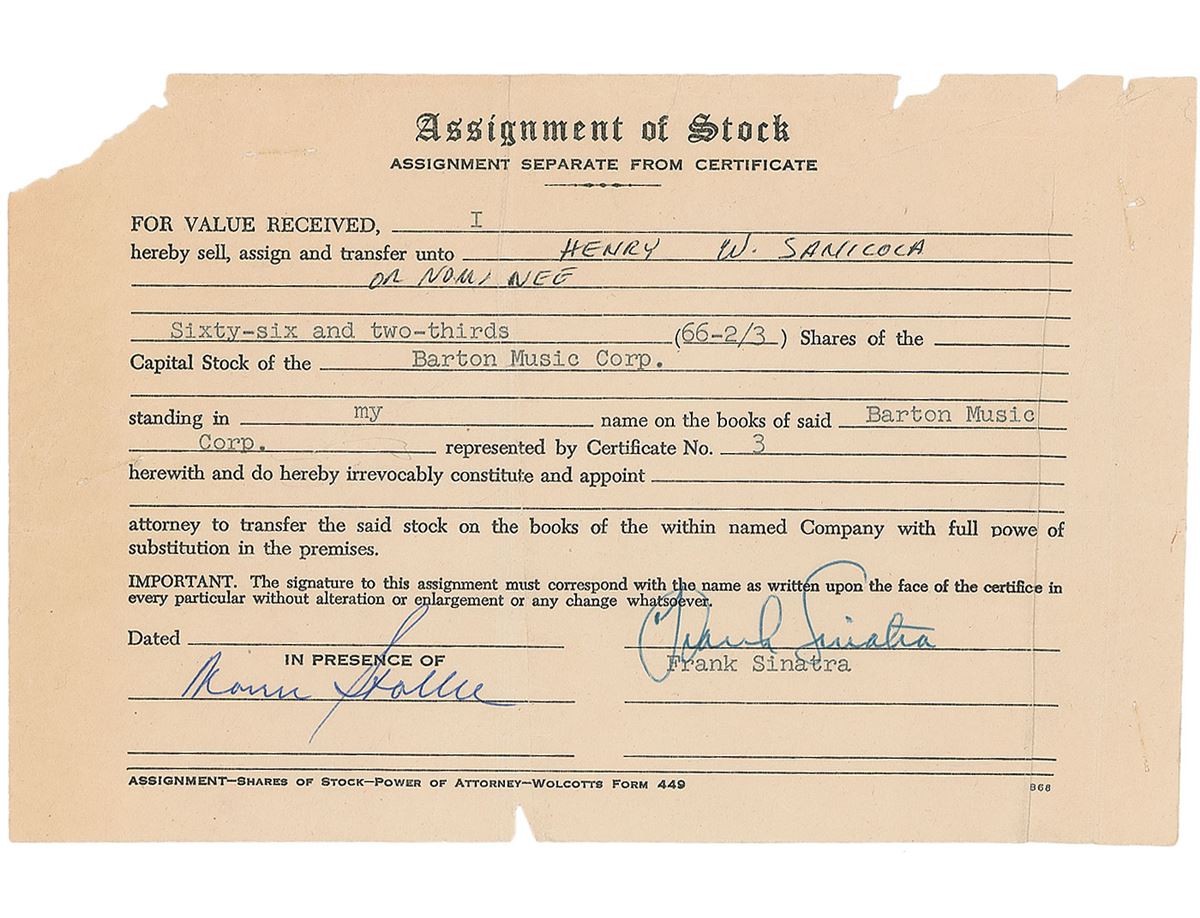 Assignment of Stock
ASSIGNMENT SEPARATE FROM CERTIFICATE
FOR VALUE RECEIVED, I
hereby sell, assign and transfer unto HENRY W. SANICOLA
OR NOMINEE
Sixty-six and two-thirds (66-2/3) Shares of the
Capital Stock of the Barton Music Corp.
standing in my name on the books of said Barton Music
Corp. represented by Certificate No. 3
herewith and do hereby irrevocably constitute and appoint
attorney to transfer the said stock on the books of the within named Company with full powe of
substitution in the premises.
IMPORTANT. The signature to this assignment must correspond with the name as written upon the face of the certifice in
every particular without alteration or enlargement or any change whatsoever.
Dated
Frank Sinatra
IN PRESENCE OF
Frank Sinatra
ASSIGNMENT—SHARES OF STOCK—POWER OF ATTORNEY—WOLCOTTS FORM 449